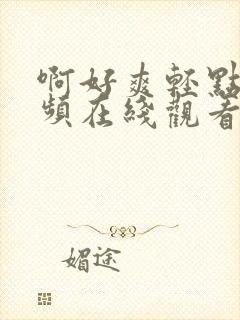 啊好爽轻點
頻在綫觀看
媚途